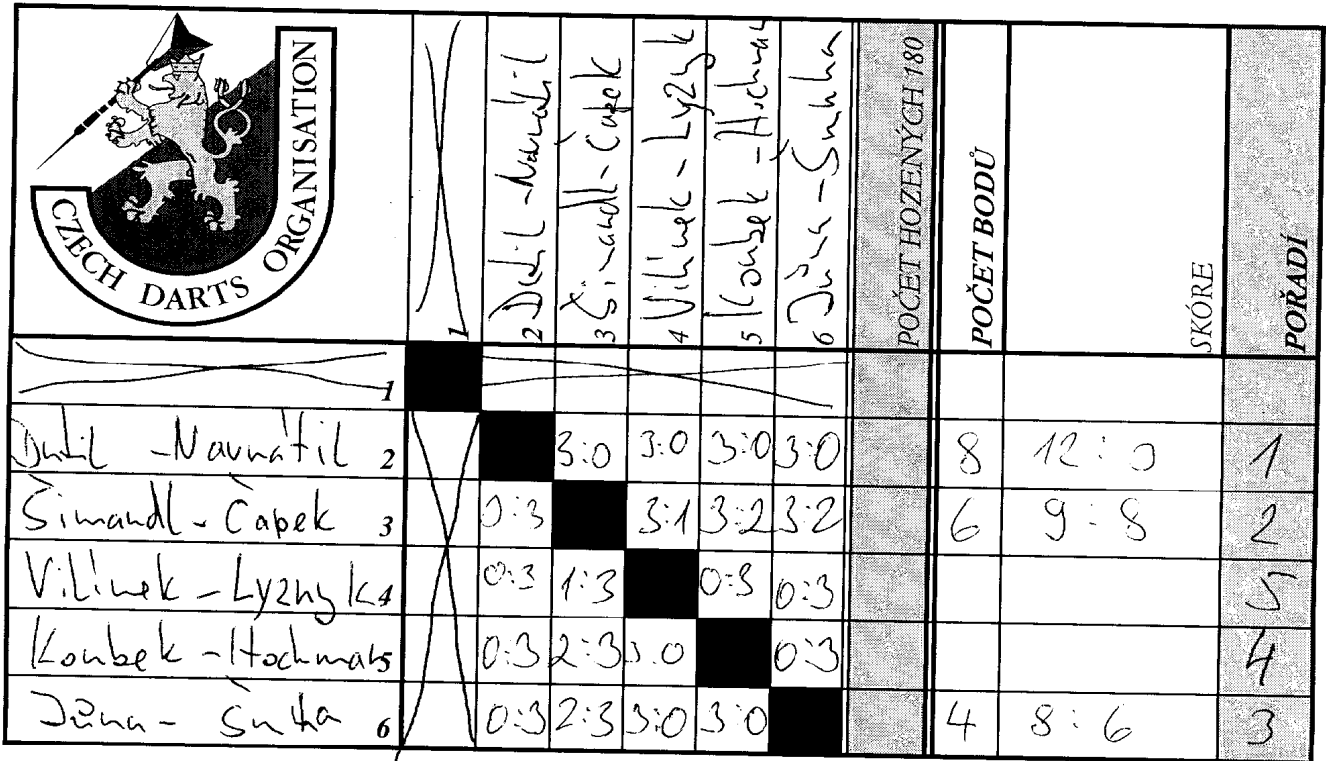 CZECH DARTS ORGANISATION
1
2 - Navrátil
3 Šimandl - Čapek
4 Vilínek - Lyznyk
5 Koubek - Hochman
6 Jůna -
POČET HOZENÝCH 180
POČET BODŮ
SKÓRE
POŘADÍ
1
- Navrátil 2 3:0 3:0 3:0 3:0 8 12:0 1
Šimandl - Čapek 3 0:3 3:1 3:2 3:2 6 9:8 2
Vilínek - Lyznyk 4 0:3 1:3 0:3 0:3 5
Koubek - Hochman 5 0:3 2:3 3:0 0:3 4
Jůna - 6 0:3 2:3 3:0 3:0 4 8:6 3